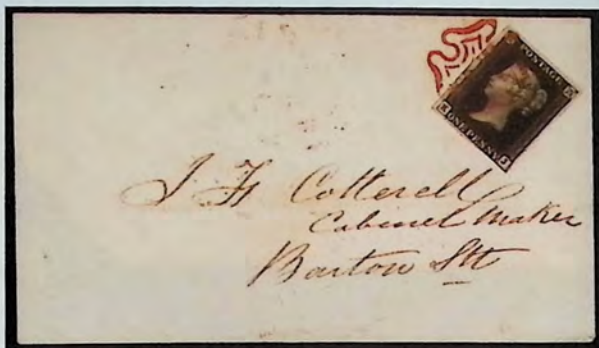 POSTAGE
ONE PENNY
J H Cotterell
Cabinet Maker
Barton Stt